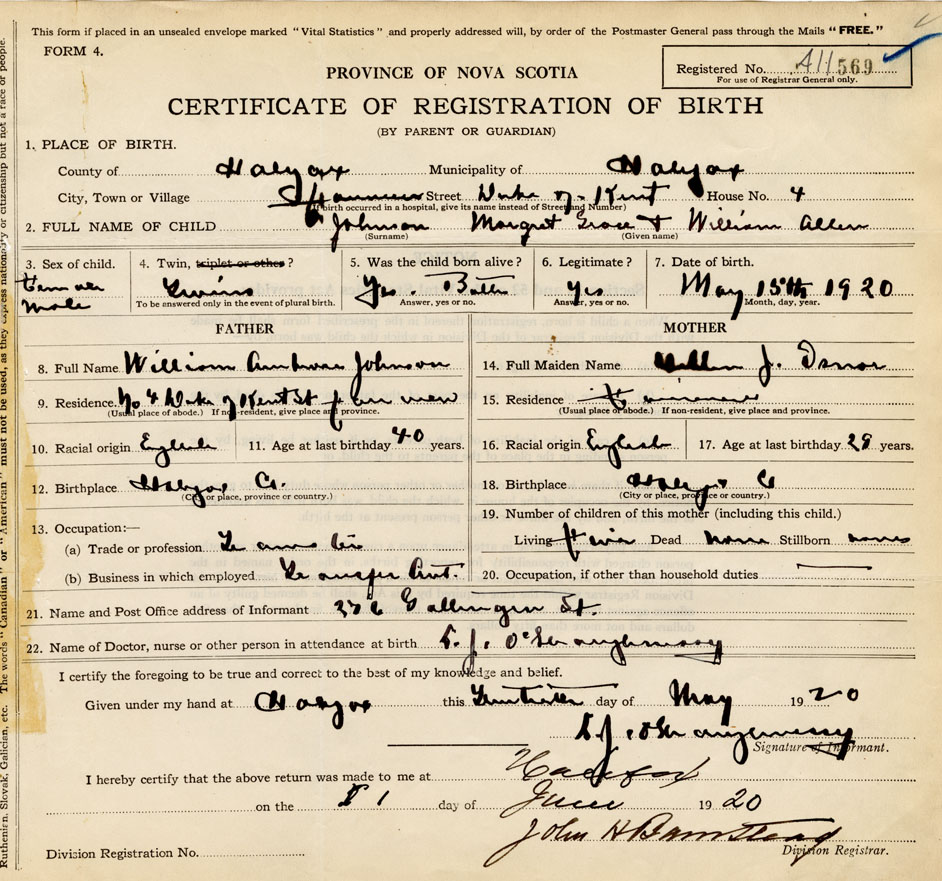 This form if placed in an unsealed envelope marked "Vital Statistics" and properly addressed will, by order of the Postmaster General pass through the Mails "FREE."
FORM 4.
PROVINCE OF NOVA SCOTIA
Registered No. A11569
For use of Registrar General only.
CERTIFICATE OF REGISTRATION OF BIRTH
(BY PARENT OR GUARDIAN)
1. PLACE OF BIRTH.
County of Halifax Municipality of Halifax
City, Town or Village Street Duke of Kent House No. 4
(If birth occurred in a hospital, give its name instead of Street and Number)
2. FULL NAME OF CHILD Johnson Margret Grace + William Allen
(Surname) (Given name)
3. Sex of child. 4. Twin, triplet or other? 5. Was the child born alive? 6. Legitimate? 7. Date of birth.
male Twins Yes Both Yes May 15th 1920
To be answered only in the event of plural birth. Answer, yes or no. Answer, yes or no. Month, day, year.
FATHER MOTHER
8. Full Name William Johnson 14. Full Maiden Name J. Isnor
9. Residence No 4 Duke of Kent St 15. Residence
(Usual place of abode.) If non-resident, give place and province. (Usual place of abode.) If non-resident, give place and province.
10. Racial origin English 11. Age at last birthday 40 years. 16. Racial origin English 17. Age at last birthday 28 years.
12. Birthplace Halifax Co. 18. Birthplace Halifax Co
(City or place, province or country.) (City or place, province or country.)
13. Occupation:— 19. Number of children of this mother (including this child.)
(a) Trade or profession Living Dead none Stillborn none
(b) Business in which employed 20. Occupation, if other than household duties
21. Name and Post Office address of Informant St.
22. Name of Doctor, nurse or other person in attendance at birth
I certify the foregoing to be true and correct to the best of my knowledge and belief.
Given under my hand at Halifax this day of May 1920
Signature of Informant.
I hereby certify that the above return was made to me at Halifax
on the 1 day of June 1920
John H Barnstead
Division Registration No. Division Registrar.
Ruthenian, Slovak, Galician, etc. The words "Canadian" or "American" must not be used, as they express nationality or citizenship but not a race or people.